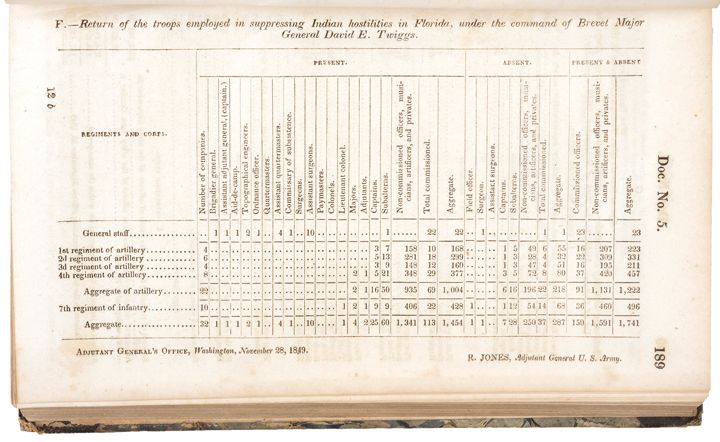 F.—Return of the troops employed in suppressing Indian hostilities in Florida, under the command of Brevet Major
General David E. Twiggs.
PRESENT. ABSENT. PRESENT & ABSENT
REGIMENTS AND CORPS.
Number of companies.
Brigadier general.
Assistant adjutant general, (captain.)
Aid-de-camp.
Topographical engineers.
Ordnance officer.
Quartermasters.
Assistant quartermasters.
Commissary of subsistence.
Surgeons.
Assistant surgeons.
Paymasters.
Colonels.
Lieutenant colonel.
Majors.
Adjutants.
Captains.
Subalterns.
Non-commissioned officers, musicians, artificers, and privates.
Total commissioned.
Aggregate.
Field officer.
Surgeon.
Assistant surgeons.
Captains.
Subalterns.
Non-commissioned officers, musicians, artificers, and privates.
Total commissioned.
Aggregate.
Commissioned officers.
Non-commissioned officers, musicians, artificers, and privates.
Aggregate.
General staff 1 1 1 2 1 4 1 10 1 22 22 1 1 1 23 23
1st regiment of artillery 4 3 7 158 10 168 1 5 49 6 55 16 207 223
2d regiment of artillery 6 5 13 281 18 299 1 3 28 4 32 22 309 331
3d regiment of artillery 4 3 9 148 12 160 1 3 47 4 51 16 195 211
4th regiment of artillery 8 2 1 5 21 348 29 377 3 5 72 8 80 37 420 457
Aggregate of artillery 22 2 1 16 50 935 69 1,004 6 16 196 22 218 91 1,131 1,222
7th regiment of infantry 10 1 2 1 9 9 406 22 428 1 1 12 54 14 68 36 460 496
Aggregate 32 1 1 1 2 1 4 1 10 1 4 2 25 60 1,341 113 1,454 1 1 7 28 250 37 287 150 1,591 1,741
ADJUTANT GENERAL'S OFFICE, Washington, November 28, 1849.
R. JONES, Adjutant General U. S. Army.
12 b
Doc. No. 5.
189